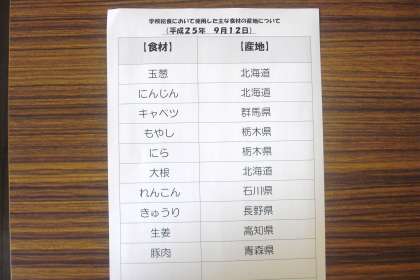 学校給食において使用した主な食材の産地について
(平成25年 9月12日)
【食材】 【産地】
玉葱 北海道
にんじん 北海道
キャベツ 群馬県
もやし 栃木県
にら 栃木県
大根 北海道
れんこん 石川県
きゅうり 長野県
生姜 高知県
豚肉 青森県